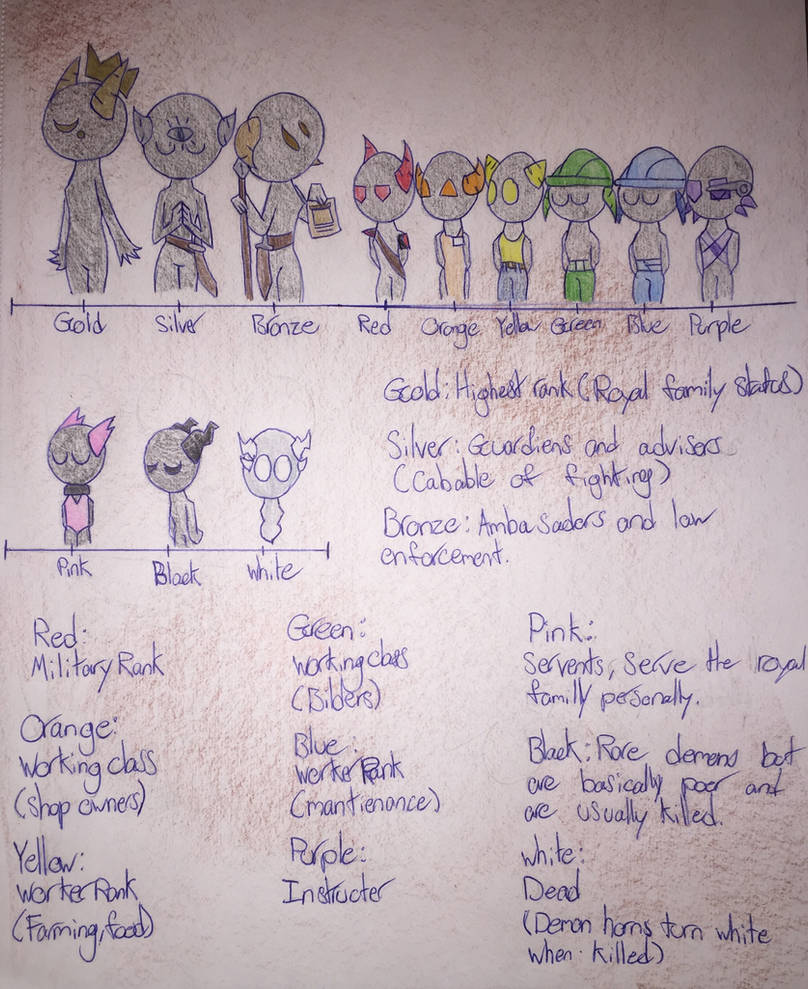 Gold Silver Bronze Red Orange Yellow Green Blue Purple
Gold: Highest rank (Royal family status)
Silver: Guardiens and advisers
(Cabable of fighting)
Bronze: Ambasaders and law
enforcement.
Pink Black White
Red:
Military Rank
Orange:
Working class
(Shop owners)
Yellow:
Worker Rank
(Farming, food)
Green:
Working class
(Bilders)
Blue:
Worker Rank
(mantienance)
Purple:
Instructer
Pink:
Servents, Serve the royal
familly personally.
Black: Rare demons but
are basically poor and
are usually killed.
White:
Dead
(Demon horns turn white
when killed)